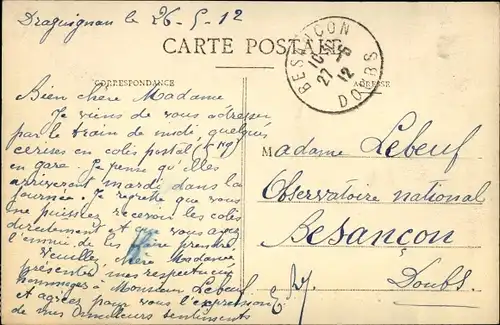 Draguignan le 26-5-12
CARTE POSTALE
BESANÇON
10
27 -5
12
DOUBS
CORRESPONDANCE
ADRESSE
Bien chère Madame
Je viens de vous adresser
par le train de midi, quelques
cerises en colis postal
en gare. Je pense qu'elles
arriveront mardi dans la
journée. Je regrette que vous
ne puissiez recevoir les colis
directement et que vous ayez
l'ennui de les faire prendre.
Veuillez, chère Madame
présenter mes respectueux
hommages à Monsieur Lebeuf
et agréez pour vous l'expression
de mes meilleurs sentiments
Madame Lebeuf
Observatoire national
Besançon
Doubs.